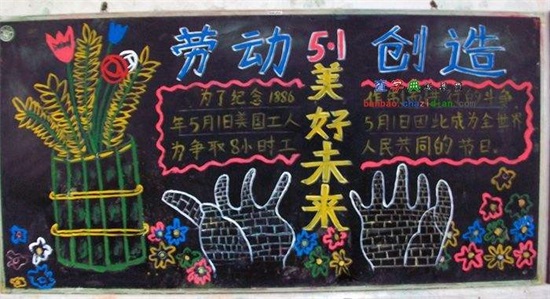 劳动 5.1 创造
美好未来
为了纪念1886
年5月1日美国工人
为争取8小时工
5月1日因此成为全世界
人民共同的节日。
查字典
banbao.chazidian.com